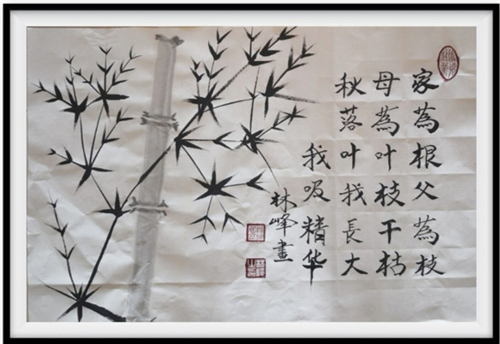 家為根父為枝
母為叶枝干枯
秋落叶我長大
我吸精华
林峰畫